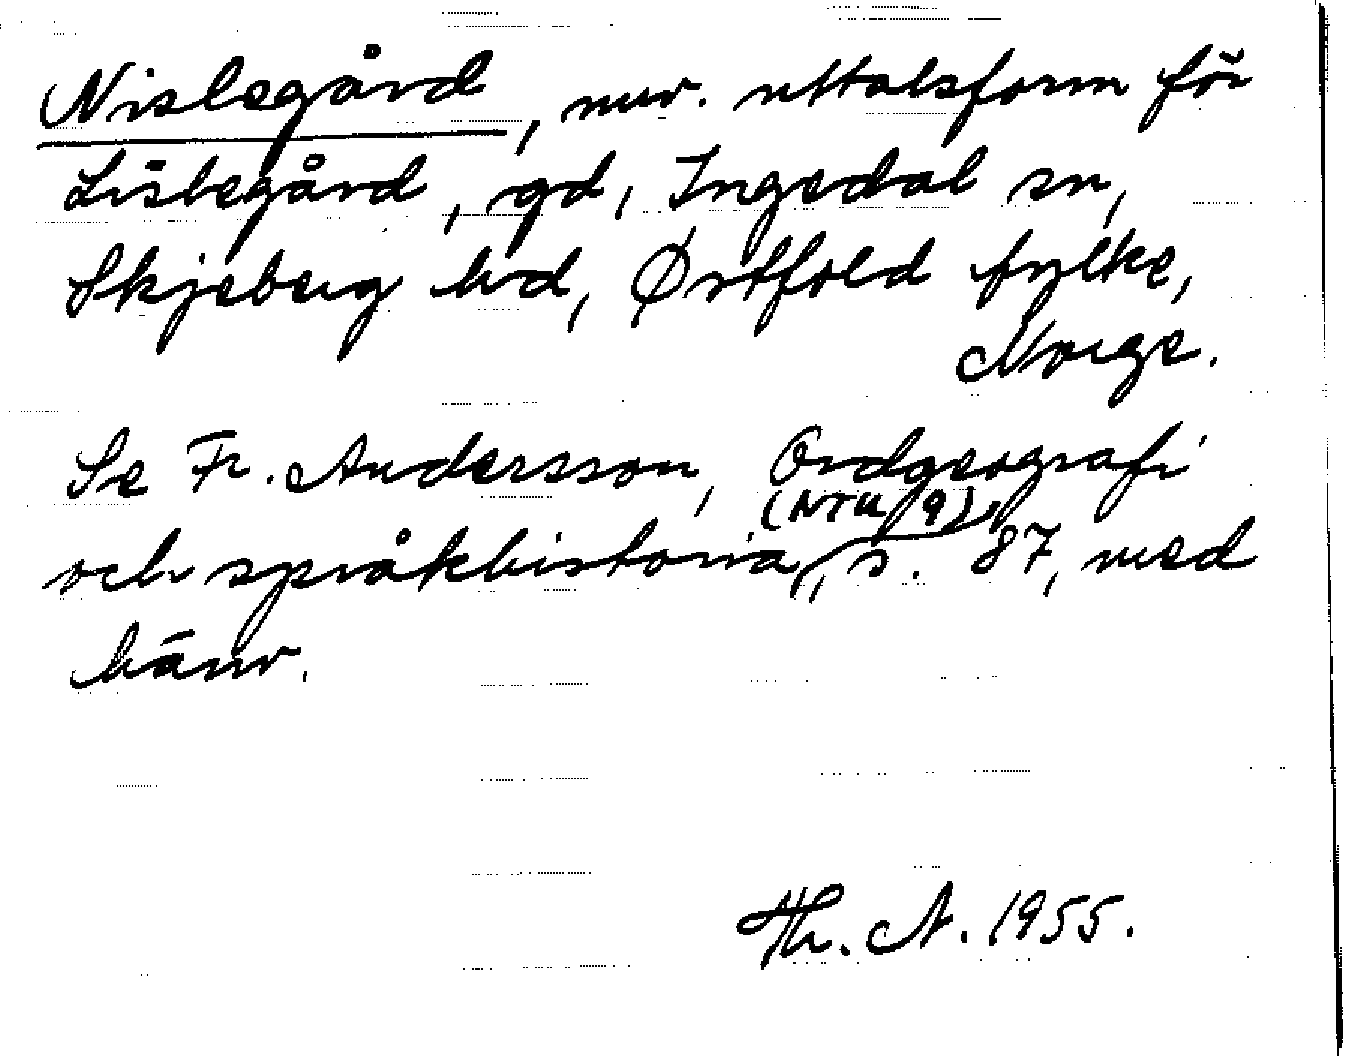 Nislegård, nuv. uttalsform för
Lislegård, gd, Ingedal sn,
Skjeberg hd, Østfold fylke,
Norge.
Se Fr. Andersson, Ordgeografi
och språkhistoria (NTU 9), s. 87, med
hänv.
Th. A. 1955.